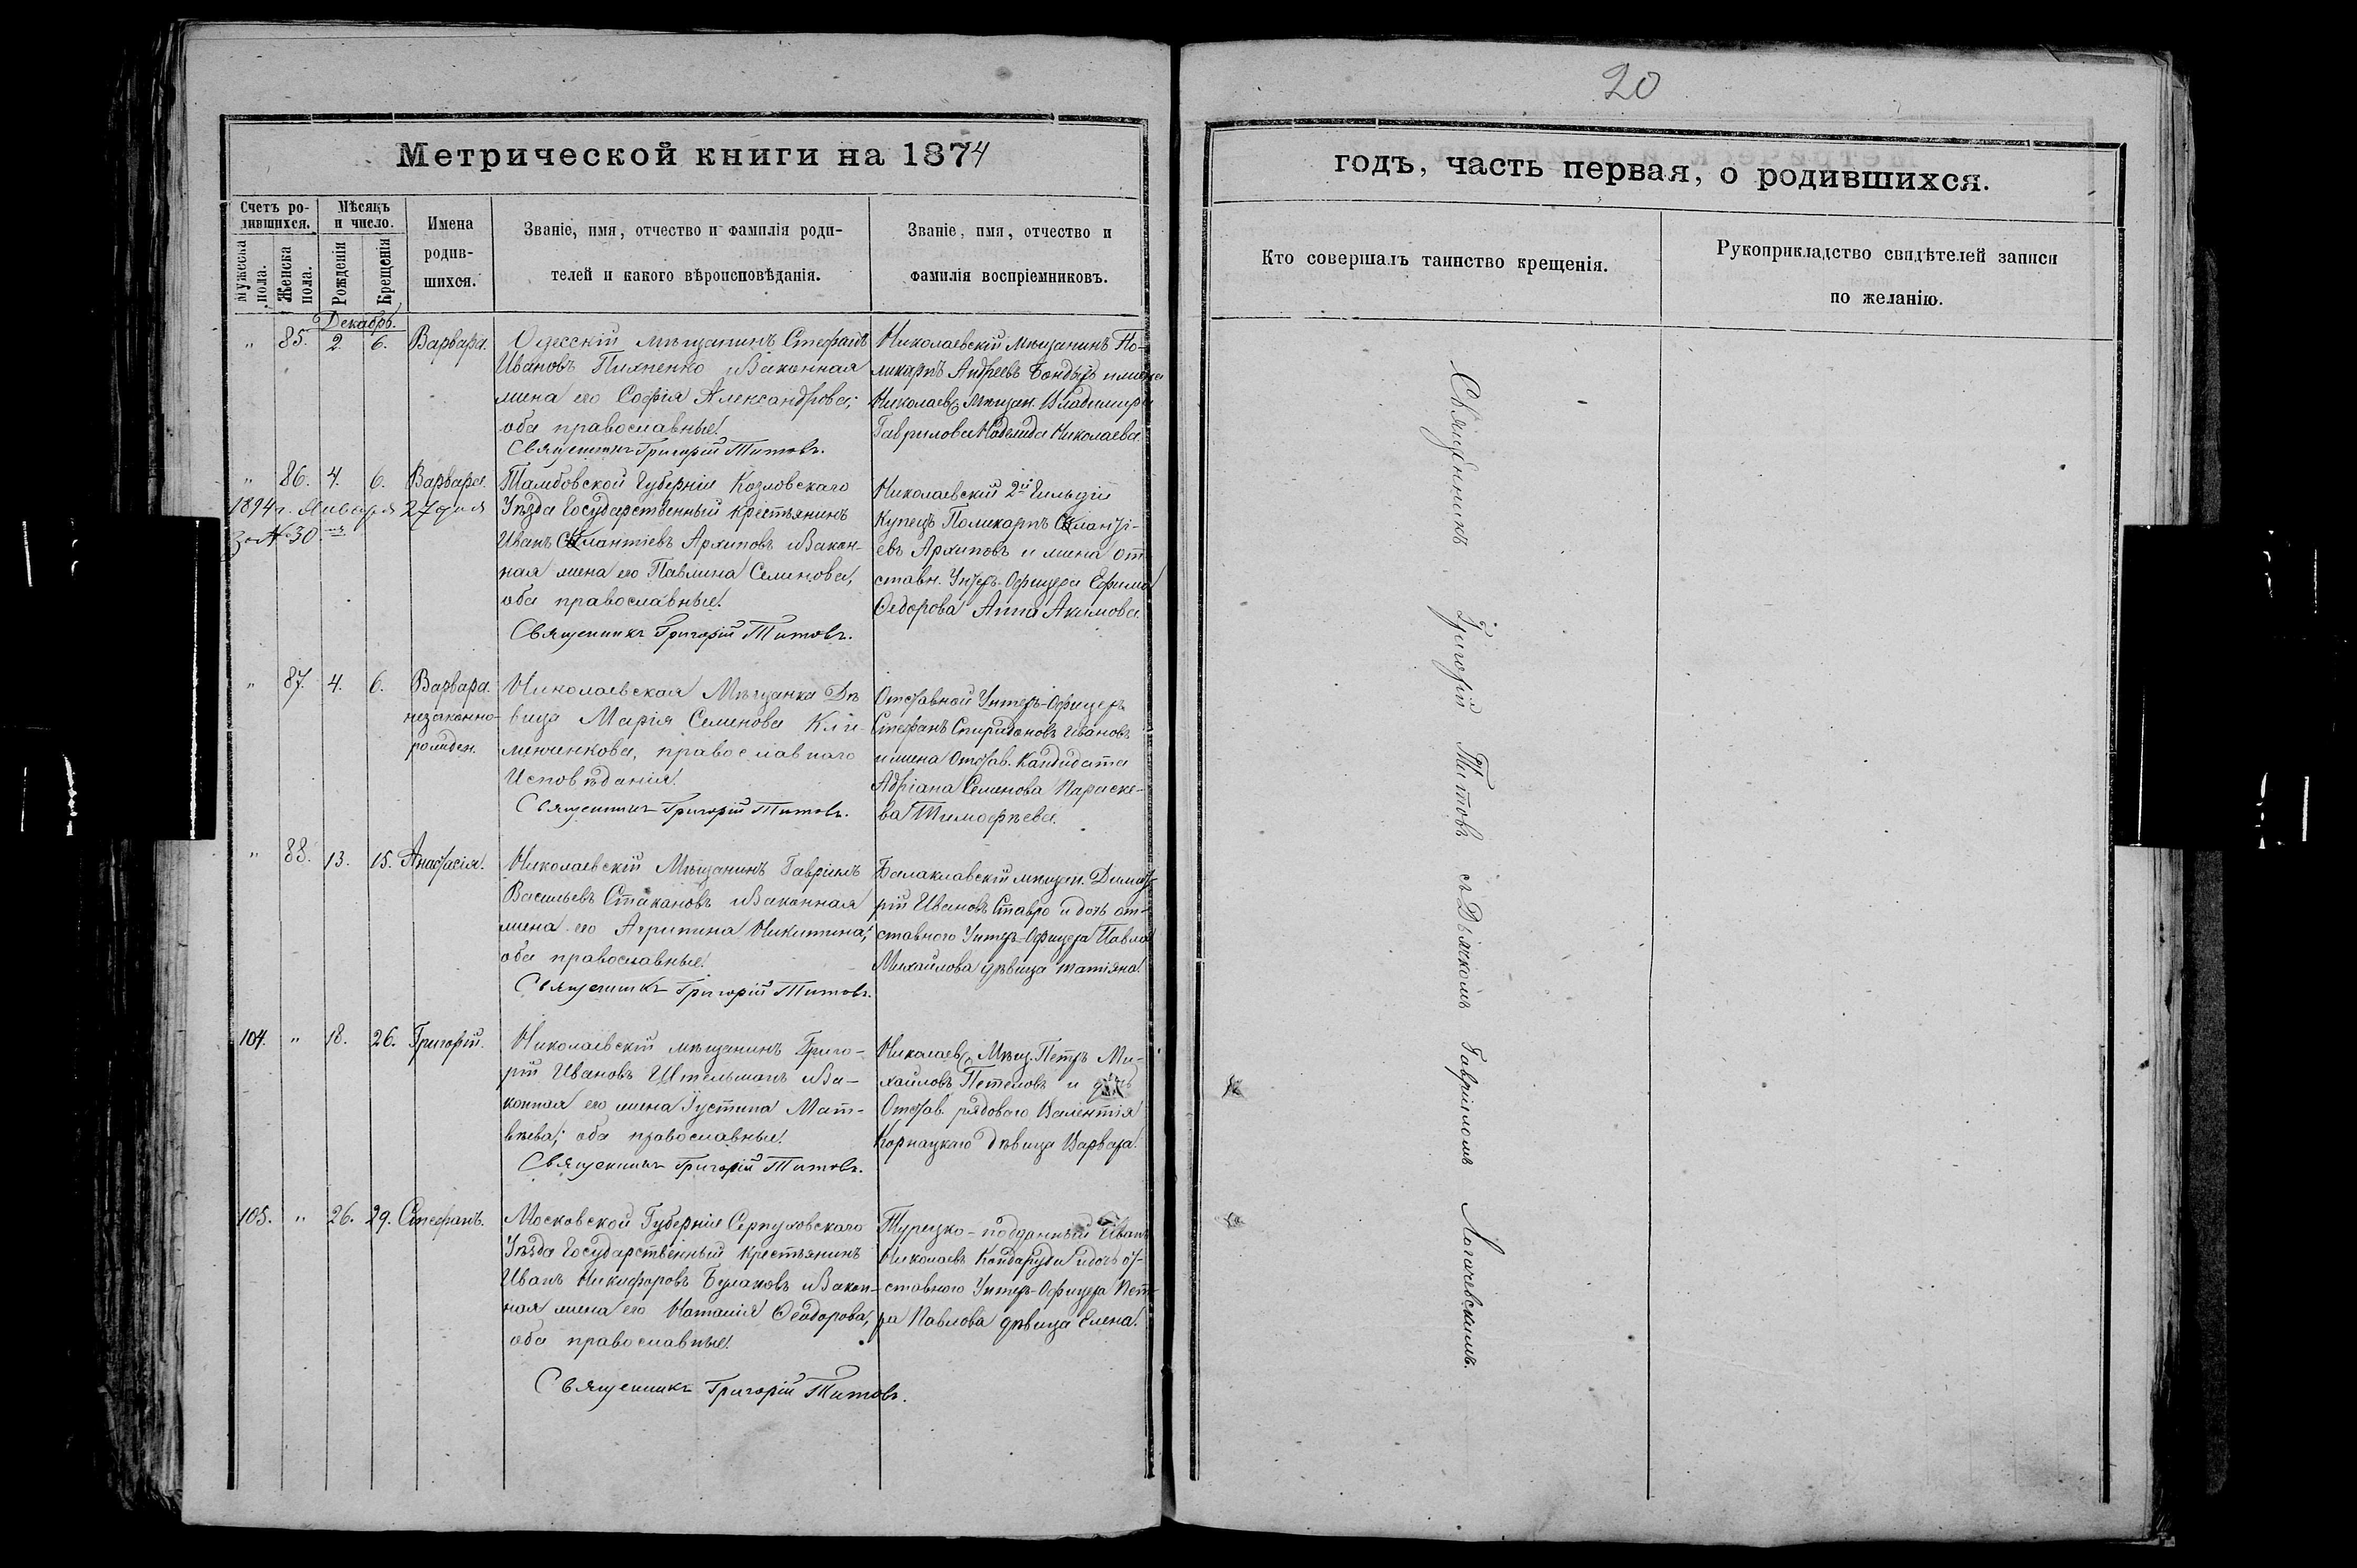 20
Метрической книги на 1874
годъ, часть первая, о родившихся.
Счетъ ро-
дившихся.
Мужеска
пола.
Женска
пола.
Мѣсяцъ
и число.
Рожденія
Крещенія
Имена
родив-
шихся.
Званіе, имя, отчество и фамилія роди-
телей и какого вѣроисповѣданія.
Званіе, имя, отчество и
фамилія воспріемниковъ.
Кто совершалъ таинство крещенія.
Рукоприкладство свидѣтелей записи
по желанію.
Декабрь.
" 85. 2. 6. Варвара.
Одесскій мѣщанинъ Стефанъ
Ивановъ Пихненко и законная
жена его Софія Александрова;
оба православные.
Священникъ Григорій Титовъ.
Николаевскій Мѣщанинъ По-
ликарпъ Андреевъ и жена
Николаев. Мѣщан. Владимира
Гаврилова Николаева.
" 86. 4. 6. Варвара.
1894 г. Января 27 дня
за № 30
Тамбовской Губерніи Козловскаго
Уѣзда Государственный Крестьянинъ
Иванъ Архиповъ и закон-
ная жена его Павлина Семенова,
оба православные.
Священникъ Григорій Титовъ.
Николаевскій 2й Гильдіи
Купецъ Поликарпъ
евъ Архиповъ и жена от-
ставн. Унтеръ-Офицера Ефима
Федорова Анна Акимова.
" 87. 4. 6. Варвара.
незаконно-
рожден.
Николаевская Мѣщанка Дѣ
вица Марія Семенова Кли-
менчикова, православнаго
Исповѣданія.
Священникъ Григорій Титовъ.
Отставной Унтеръ-Офицеръ
Стефанъ Спиридоновъ Ивановъ
и жена Отстав. Кандидата
Адріана Семенова Параске-
ва Тимофѣева.
" 88. 13. 15. Анастасія.
Николаевскій Мѣщанинъ Гавріилъ
Васильевъ Стакановъ и законная
жена его Агрипина Никитина;
оба православные.
Священникъ Григорій Титовъ.
Балаклавскій мѣщан. Димит-
рій Ивановъ Ставро и дочь от-
ставного Унтеръ-Офицера Павла
Михайлова дѣвица Татіяна.
104. " 18. 26. Григорій.
Николаевскій мѣщанинъ Григо-
рій Ивановъ Штельмахъ и за-
конная его жена Іустина Мат-
вѣева; оба православные.
Священникъ Григорій Титовъ.
Николаев. Мѣщ. Петръ Ми-
хайловъ Петеловъ и дочь
Отстав. рядового Валентія
Корнацкаго дѣвица Варвара.
105. " 26. 29. Стефанъ.
Московской Губерніи Серпуховскаго
Уѣзда Государственный крестьянинъ
Иванъ Никифоровъ Булаковъ и закон-
ная жена его Наталія Феодорова,
оба православные.
Священникъ Григорій Титовъ.
Турецко-подданный Иванъ
Николаевъ Кондаруди и дочь от-
ставного Унтеръ-Офицера Пет-
ра Павлова дѣвица Елена.
Священникъ Григорій Титовъ съ Дьячкомъ Гавріиломъ Логачевскимъ.